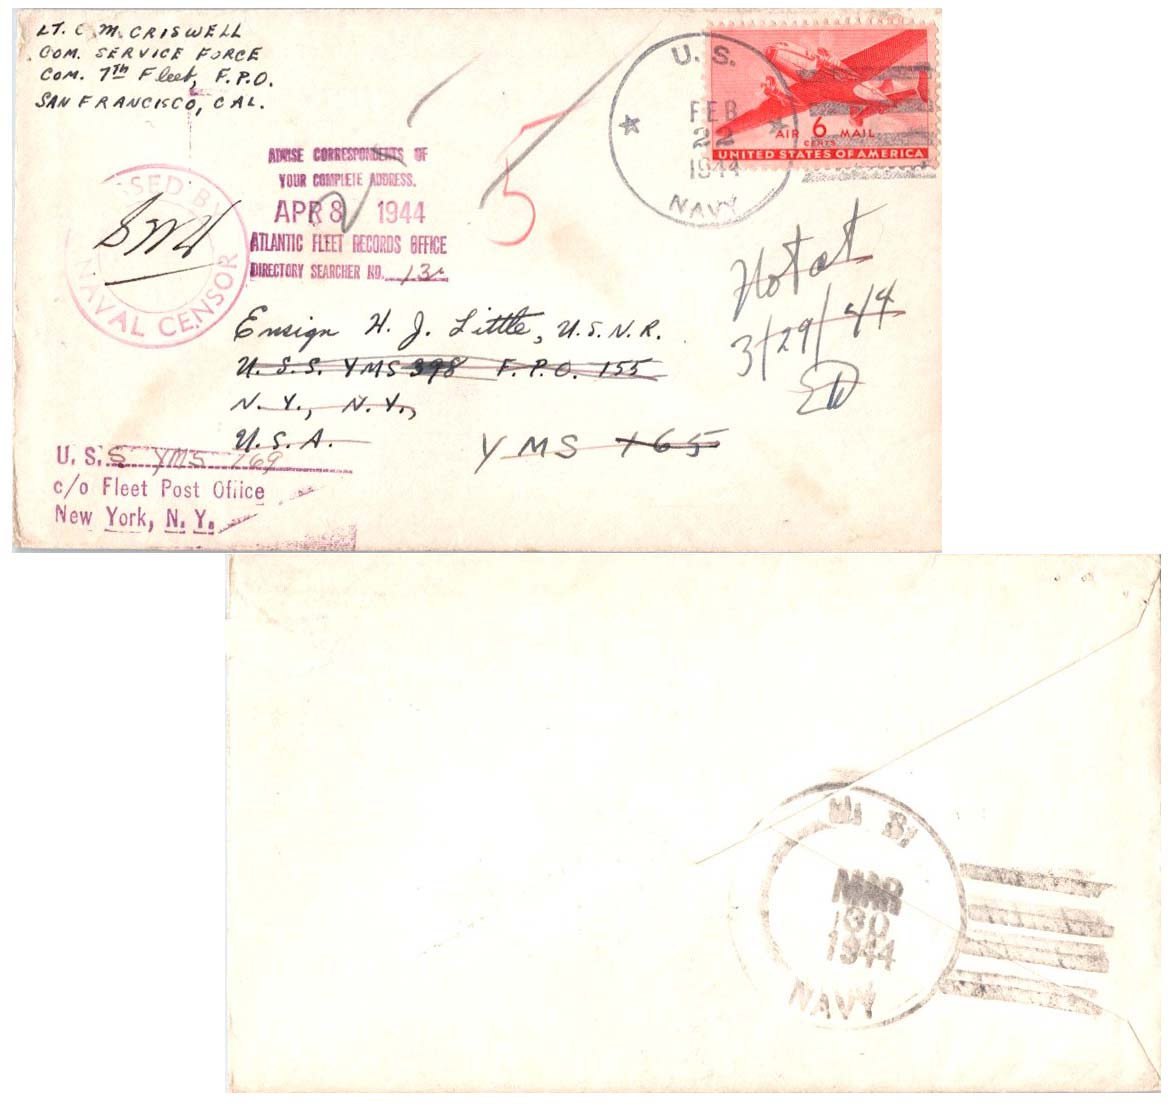 LT. C M. CRISWELL
COM. SERVICE FORCE
COM. 7TH Fleet, F.P.O.
SAN FRANCISCO, CAL.
U. S.
FEB
22
1944
NAVY
AIR 6 MAIL
CENTS
UNITED STATES OF AMERICA
ADVISE CORRESPONDENTS OF
YOUR COMPLETE ADDRESS.
APR 8 1944
ATLANTIC FLEET RECORDS OFFICE
DIRECTORY SEARCHER NO.
5
SED BY
NAVAL CENSOR
Not at
3/29/44
Ensign H. J. Little, U.S.N.R.
U.S.S. YMS 398 F.P.O. 155
N.Y., N.Y.,
U.S.A.
YMS 165
U. S. S YMS 169
c/o Fleet Post Office
New York, N. Y.
U. S.
MAR
30
1944
NAVY